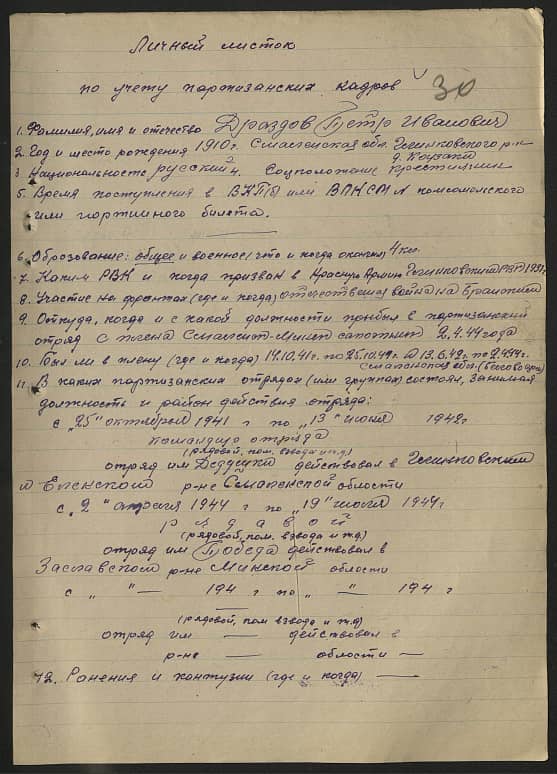 Личный листок
по учету партизанских кадров
30
1. Фамилия, имя и отечество Драздов Петр Иванович
2. Год и место рождения 1910г. Смаленская обл. р-н
д.
3. Национальность русский 4. Соцположение крестьянин
5. Время поступления в ВКП(б) или ВЛКСМ № комсомольского
или партийного билета.
6. Оброзование: общее и военное (что и когда окончил) 4 кл.
7. Каким РВК и когда призван в Красную Армию
8. Участие на фронтах (где и когда) отечественая война на
9. Откуда, когда и с какой должности прибыл в партизанский
отряд с плена 2.4.44 года
10. Был ли в плену (где и когда) 14.10.41г. по 25.10.41г. 13.6.42г. по 2.4.44г.
Смаленская обл.
11. В каких партизанских отрядах (или группах) состоял, занимал
должность и район действия отряда:
с „25" октября 1941 г по „13" июня 1942г
командир отряда
(рядовой, пом. взвода и т.д.)
отряд им Дедушки действовал в
р-не Смаленской области
с „2" апреля 1944 г по „19" июля 1944г
рядавой
(рядовой, пом. взвода и т.д.)
отряд им Победа действовал в
Заславском р-не Минской области
с „ " — 194 г по „ — " — 194 г
(рядовой, пом взвода и т.д)
отряд им — действовал в
р-не — области —
12. Ранения и контузии (где и когда) —